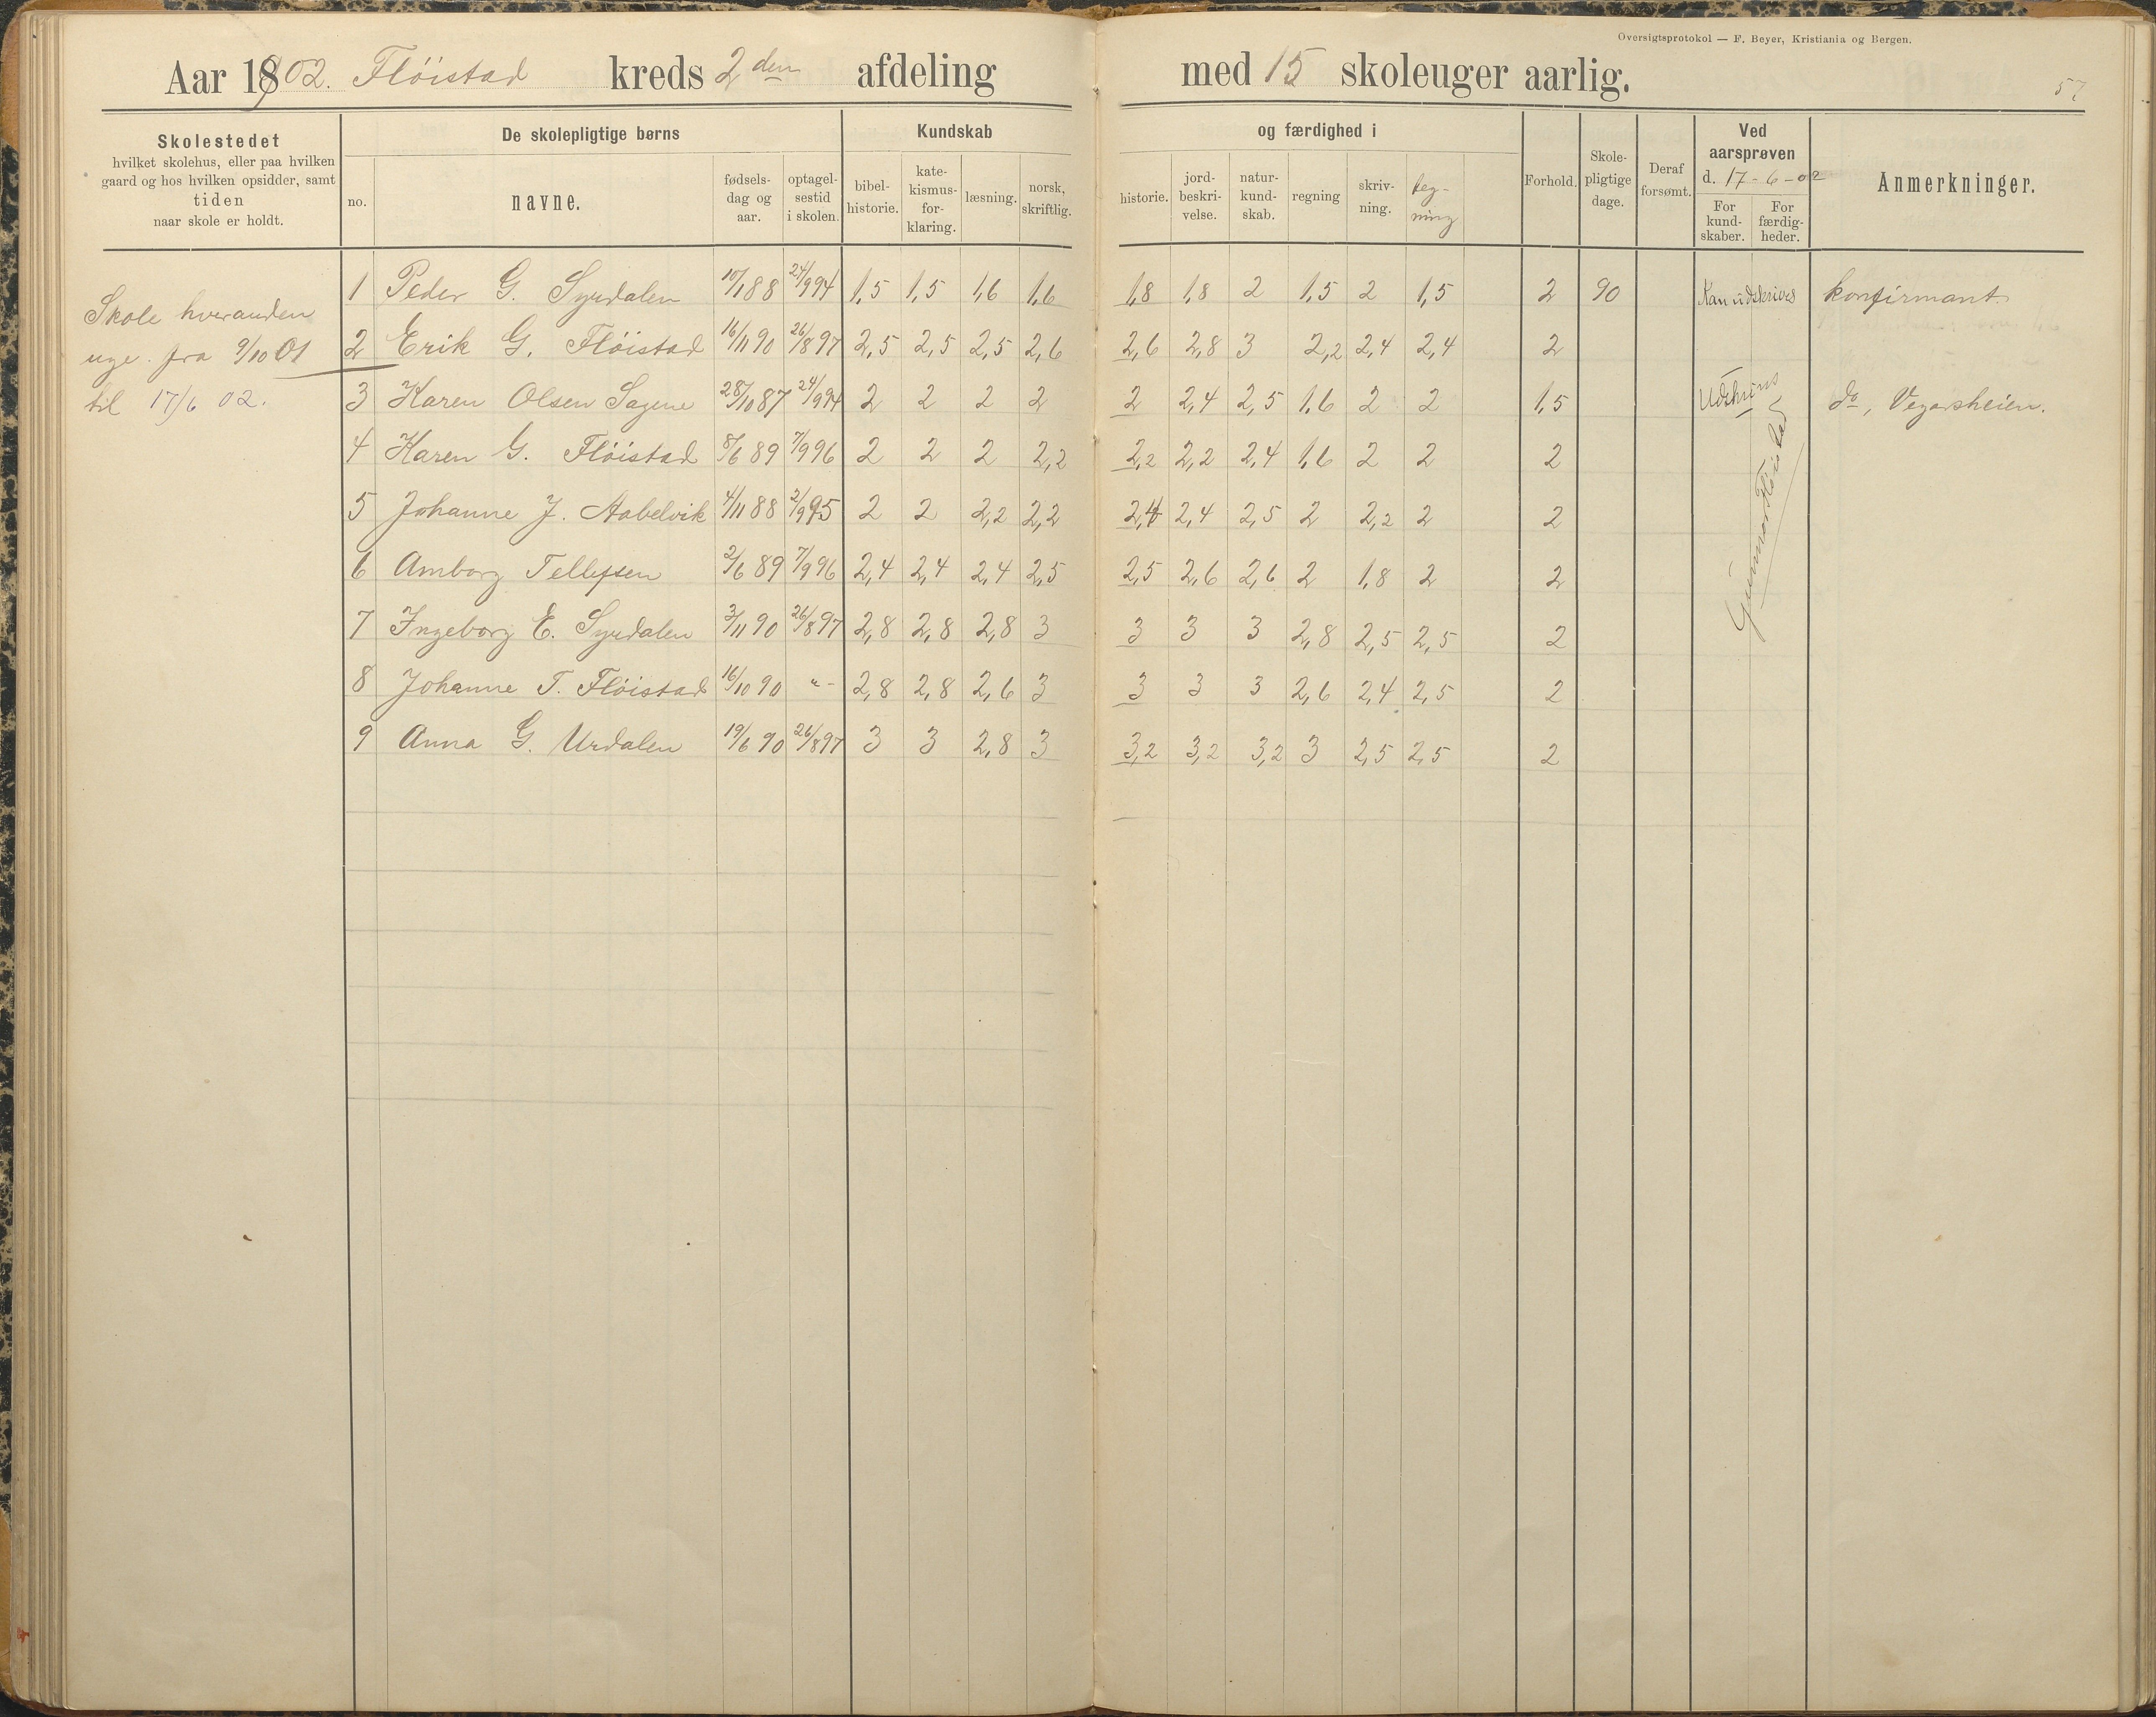 Oversigtsprotokol — F. Beyer, Kristiania og Bergen.
Aar 1902. Flöistad kreds 2den afdeling med 15 skoleuger aarlig.
57
Skolestedet
hvilket skolehus, eller paa hvilken
gaard og hos hvilken opsidder, samt
tiden
naar skole er holdt.
De skolepligtige børns
no.
navne.
fødsels-
dag og
aar.
optagel-
sestid
i skolen.
Kundskab
bibel-
historie.
kate-
kismus-
for-
klaring.
læsning.
norsk,
skriftlig.
og færdighed i
historie.
jord-
beskri-
velse.
natur-
kund-
skab.
regning
skriv-
ning.
teg-
ning
Forhold.
Skole-
pligtige
dage.
Deraf
forsømt.
Ved
aarsprøven
d. 17-6-02
For
kund-
skaber.
For
færdig-
heder.
Anmerkninger.
Skole hveranden
uge fra 9/10 01
til 17/6 02.
1 Peder G. Syrdalen 10/1 88 24/9 94 1,5 1,5 1,6 1,6 1,8 1,8 2 1,5 2 1,5 2 90 Kan udskrives konfirmant
2 Erik G. Flöistad 16/11 90 26/8 97 2,5 2,5 2,5 2,6 2,6 2,8 3 2,2 2,4 2,4 2
3 Karen Olsen Sagene 28/10 87 24/9 94 2 2 2 2 2 2,4 2,5 1,6 2 2 1,5 Udskrives do, Vegarsheien.
4 Karen G. Flöistad 8/6 89 7/9 96 2 2 2 2,2 2,2 2,2 2,4 1,6 2 2 2
5 Johanne J. Aabelvik 4/11 88 2/9 95 2 2 2,2 2,2 2,4 2,4 2,5 2 2,2 2 2
6 Amborg Tellefsen 2/6 89 7/9 96 2,4 2,4 2,4 2,5 2,5 2,6 2,6 2 1,8 2 2
7 Ingeborg E. Syrdalen 3/11 90 26/8 97 2,8 2,8 2,8 3 3 3 3 2,8 2,5 2,5 2
8 Johanne T. Flöistad 16/10 90 "- 2,8 2,8 2,6 3 3 3 3 2,6 2,4 2,5 2
9 Anna G. Urdalen 19/6 90 26/8 97 3 3 2,8 3 3,2 3,2 3,2 3 2,5 2,5 2
Gunnar Flöistad